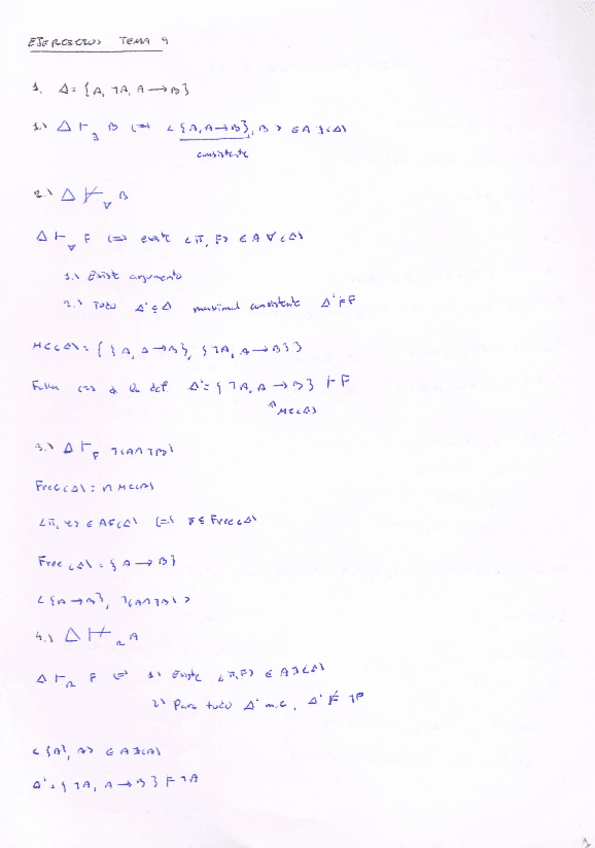 EJERCICIOS TEMA 9
1. Δ = {A, ¬A, A → B}
1.) Δ ⊢∃ B ⟺ <{A, A → B}, B> ∈ A∃(Δ)
consistente
2.) Δ ⊬∀ B
Δ ⊢∀ F ⟺ existe <π, F> ∈ A∀(Δ)
1.) Existe argumento
2.) Todo Δ' ⊆ Δ maximal consistente Δ' ⊨ F
MC(Δ) = {{A, A → B}, {¬A, A → B}}
Falla (=) 2 def. Δ' = {¬A, A → B} ⊬ F
MC(Δ)
3.) Δ ⊢F ¬(A ∧ ¬B)
Free(Δ) = ∩ MC(Δ)
<π, φ> ∈ AF(Δ) ⟺ π ⊆ Free(Δ)
Free(Δ) = {A → B}
<{A → B}, ¬(A ∧ ¬B)>
4.) Δ ⊬R A
Δ ⊢R F ⟺ 1) Existe <π, F> ∈ A∃(Δ)
2) Para todo Δ' m.c., Δ' ⊭ ¬F
<{A}, A> ∈ A∃(Δ)
Δ' = {¬A, A → B} ⊨ ¬A
1